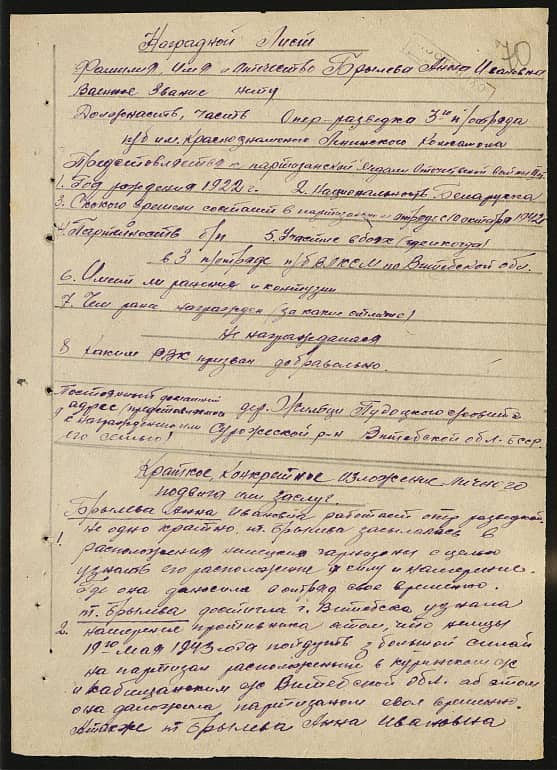 70
Наградной Лист
Фамилия, имя и отчество Брылева Анна Ивановна
Военное звание нету
Должность, часть Опер-разведка 3го п/отряда
п/б им. Краснознаменного Ленинского Комсомола
Представляется к партизанской медали Отечественной войны
1. Год рождения 1922 г. 2. Национальность Беларуска
3. Сколько времени состоит в партизан отряде с 10 октября 1942
4. Партийность б/п 5. Участие в боях (где и когда)
в 3 п/отряде п/б ВЛКСМ по Витебской обл.
6. Имеет ли ранения и контузии
7. Чем ране награжден (за какие отличие)
Не награждалася
8 каким РВК призван добравольно.
Постоянный домашний
адрес дер. Жеметци Пудоцкого сельсовета
к награждению и Суражской р-н Витебской обл. БССР.
его семью!
Краткое, конкретное изложение личного
подвига или заслуг
Брылева Анна Ивановна работает опер разведкой
не однократно. т. Брылева засылалась в
1. расположения немецких гарнизоны с целью
узнать его расположение и силу и намерение.
где она даносила в отряд свое временно.
т. Брылева достигла г. Витебска узнала
2. намерение противника о том, что немцы
19го мая 1943 года пойдуть з большой силай
на партизан расположений в Куринском с/с
и Витебской обл. об этом
она даложила партизаном свое временно.
А также т Брылева Анна Ивановна